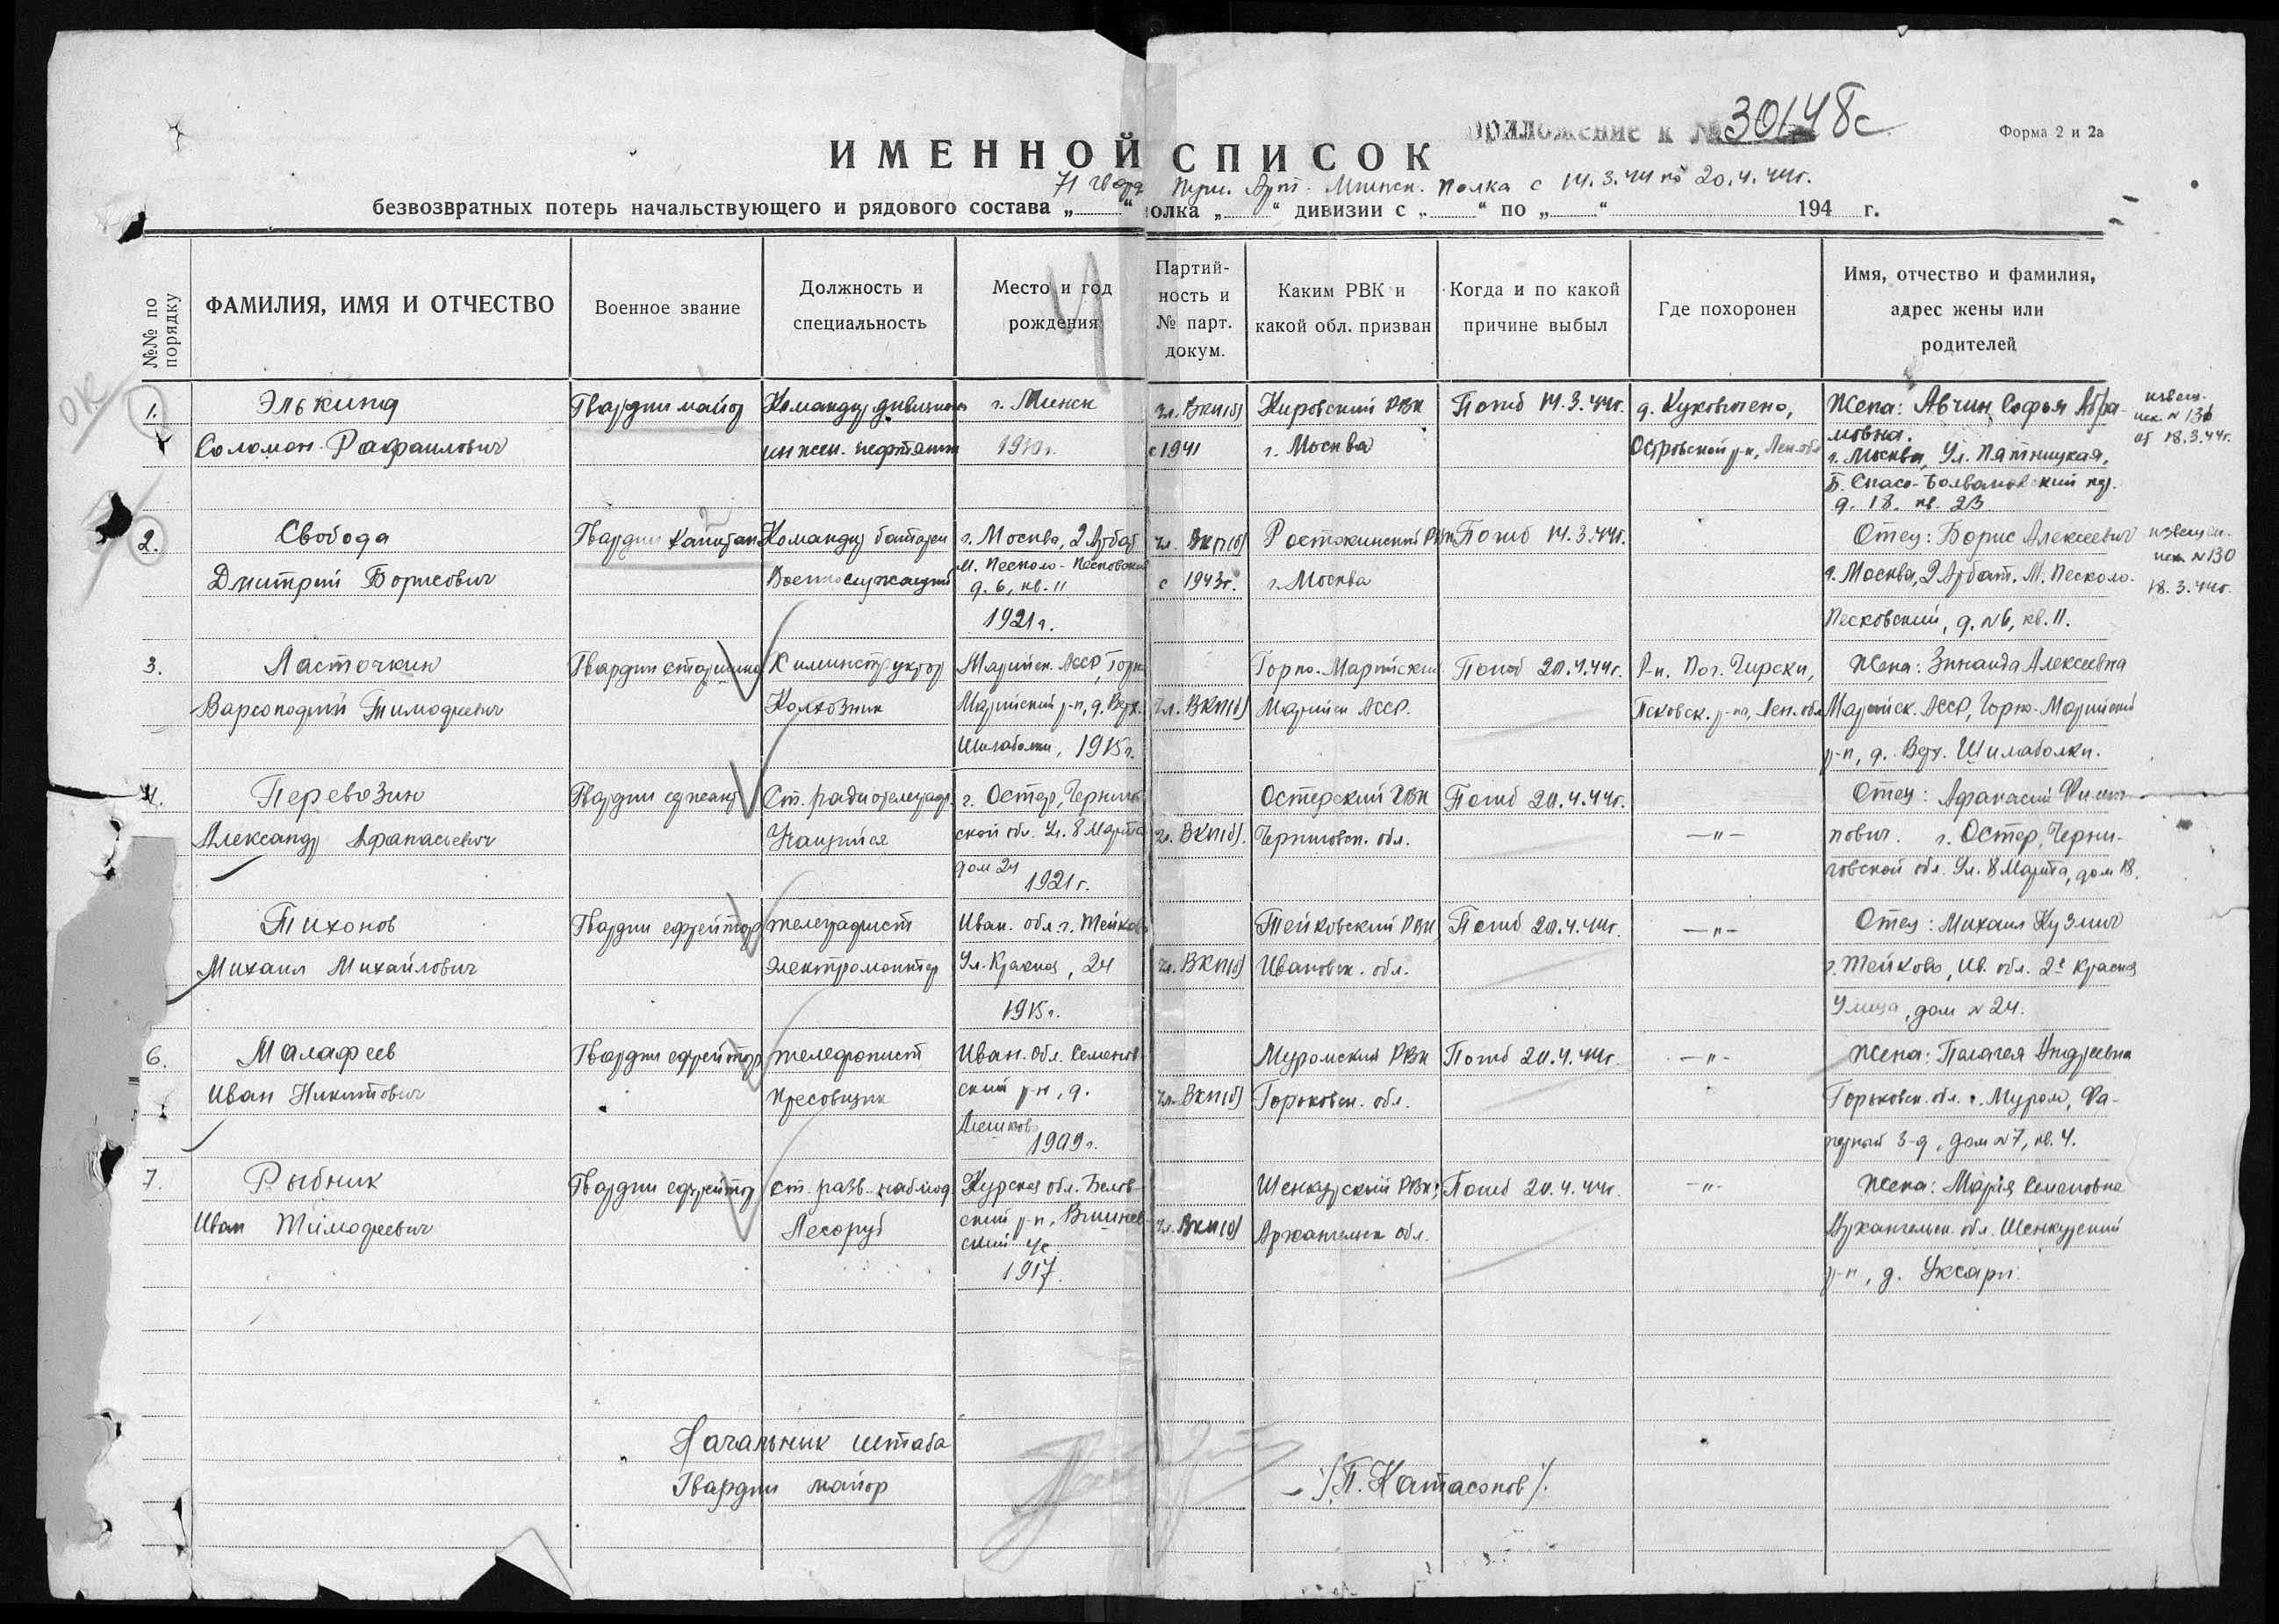 приложение к № 30148с
Форма 2 и 2а
ИМЕННОЙ СПИСОК
71 гвард. Арт. Минск. полка с 14.3.44 по 20.4.44г.
безвозвратных потерь начальствующего и рядового состава „ “ полка „ “ дивизии с „ “ по „ “ 194 г.
№№ по порядку
ФАМИЛИЯ, ИМЯ И ОТЧЕСТВО
Военное звание
Должность и специальность
Место и год рождения
Партий-
ность и
№ парт.
докум.
Каким РВК и какой обл. призван
Когда и по какой причине выбыл
Где похоронен
Имя, отчество и фамилия,
адрес жены или
родителей
ОК
1.
Элькинд
Соломон Рафаилович
Гвардии майор
Командир дивизиона
инжен. нефтяник
г. Минск
1910г.
чл. ВКП(б)
с 1941
Кировский РВК
г. Москва
Погиб 14.3.44г.
Островской р-н, Лен. обл
Жена: Авчин Софья Абра-
мовна.
г. Москва, Ул. Пятницкая,
Б. Спасо-Болвановский пер.
д. 18. кв. 23
извещ.
от 18.3.44г.
2.
Свобода
Дмитрий Борисович
Гвардии капитан
Командир батареи
Военнослужащий
г. Москва, 2 Арбат
М. Песковский
д. 6, кв. 11
1921г.
чл. ВКП(б)
с 1943г.
Ростокинский РВК
г. Москва
Погиб 14.3.44г.
Отец: Борис Алексеевич
г. Москва, 2 Арбат. М. Песколо-
Песковский, д. №6, кв. 11.
извещен.
исх №130
18.3.44г.
3.
Ласточкин
Варсонофий Тимофеевич
Гвардии старшина
Химинструктор
Колхозник
Марийск. АССР, Горно
Марийский р-н, д. Верх.
Шилаболки, 1915г.
чл. ВКП(б)
Горно-Марийский
Марийск АССР.
Погиб 20.4.44г.
Р-н. Пог. Чирски,
Псковск. р-на, Лен. обл
Жена: Зинаида Алексеевна
Марийск. АССР, Горно-Марийский
р-н, д. Верх. Шилаболки.
4.
Перевозин
Александр Афанасьевич
Гвардии сержант
Ст. радиотелеграф.
Учащийся
г. Остер, Чернигов
ской обл. Ул. 8 Марта
дом 24
1921г.
чл. ВКП(б).
Остерский РВК
Черниговск. обл.
Погиб 20.4.44г.
—„—
Отец: Афанасий Филип-
пович. г. Остер, Черни-
говской обл. Ул. 8 Марта, дом 18.
Тихонов
Михаил Михайлович
Гвардии ефрейтор
телеграфист
Электромонтер
Иван. обл. г. Тейково
Ул. Красная, 24
1915г.
чл. ВКП(б)
Тейковский РВК
Ивановск. обл.
Погиб 20.4.44г.
—„—
Отец: Михаил Кузмич
г. Тейково, Ив. обл. 2я Красная
Улица, дом №24.
6.
Малафеев
Иван Никитович
Гвардии ефрейтор
телефонист
Пресовщик
Иван. обл. Семенов-
ский р-н, д.
1909г.
чл. ВКП(б)
Муромский РВК
Горьковск. обл.
Погиб 20.4.44г.
—„—
Жена: Палагея Андреевна
Горьковск. обл. г. Муром, Фа-
нерный 3-д, дом №7, кв. 4.
7.
Рыбник
Иван Тимофеевич
Гвардии ефрейтор
ст. разв.-наблюд
Лесоруб
Курская обл. Белов-
ский р-н, Вишнев-
ский с/с
1917.
чл. ВКП(б)
Шенкурский РВК;
Архангельск обл.
Погиб 20.4.44г.
—„—
Жена: Мария Семеновна
Архангельск. обл. Шенкурский
р-н, д. Уксари.
Начальник штаба
Гвардии майор
/П. Катасонов/.